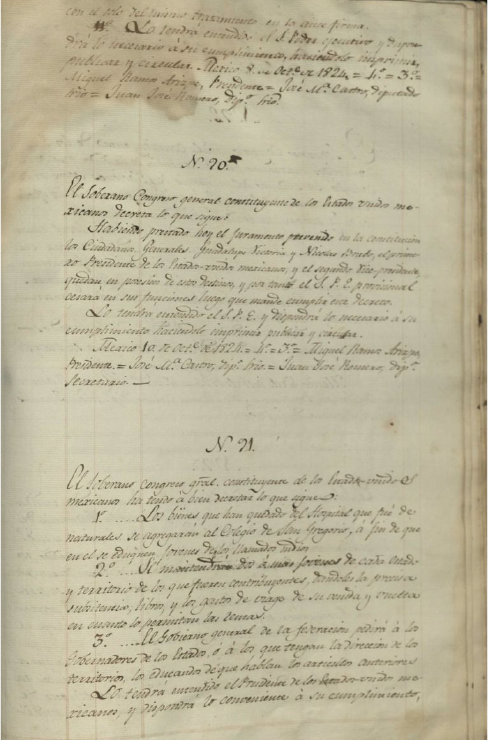 con el solo del mismo tratamiento en lo que firma.
Lo tendrá entendido el S. Poder ejecutivo y dispon-
drá lo necesario á su cumplimiento, haciendolo imprimir,
publicar y circular. Mexico 8 de Octe. de 1824. = 4º = 3º =
Miguel Ramos Arizpe, Presidente = José Mª Castro, diputado
srio = Juan José Romero, dipº srio.
Nº 90.
El Soberano Congreso general constituyente de los Estados unidos me-
xicanos decreta lo que sigue:
Habiendo prestado hoy el juramento prevenido en la constitución
los Ciudadanos Generales Guadalupe Victoria y Nicolas Bravo, el prime-
ro Presidente de los Estados-unidos mexicanos, y el segundo Vice-presidente,
quedan en posesion de estos destinos, y por tanto el S. P. E. provisional
cesará en sus funciones luego que mande cumplir este decreto.
Lo tendrá entendido el S. P. E. y dispondrá lo necesario á su
cumplimiento haciendolo imprimir publicar y circular.
Mexico 10 de Octe. de 1824. = 4º = 3º = Miguel Ramos Arizpe,
Presidente. = José Mª Castro, dipº srio. = Juan José Romero, dipº
Secretario.
Nº 91.
El soberano Congreso gral. constituyente de los Estados-unidos
mexicanos ha tenido á bien decretar lo que sigue:
1º Los bienes que han quedado del Hospital que fué de
naturales se agregaran al Colegio de San Gregorio, á fin de que
en el se eduquen jovenes de los llamados indios
2º Se mantendran dos ó mas jovenes de cada estado
y territorio de los que fueren contribuyentes, dandoles la precisa
subsistencia, libros, y los gastos de viage de su venida y vuelta
en cuanto lo permitan las rentas.
3º El Gobierno general de la federacion pedirá á los
Gobernadores de los Estados, o á los que tengan la direccion de los
territorios, los educandos de que hablan los articulos anteriores
Lo tendrá entendido el Presidente de los Estados-unidos me-
xicanos, y dispondrá lo conveniente á su cumplimiento,